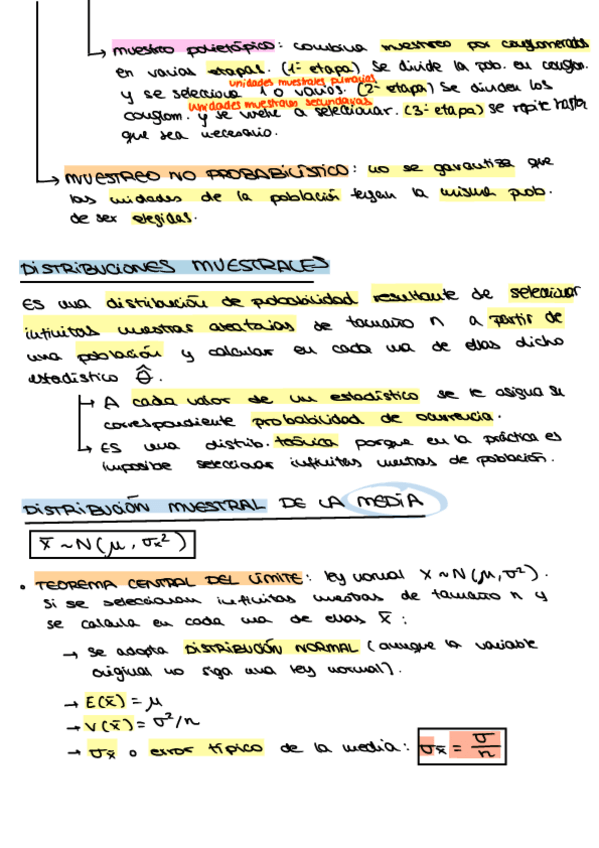 muestreo polietápico: combina muestreo por conglomerados
en varias etapas. (1ª etapa) Se divide la pob. en conglom.
unidades muestrales primarias
y se selecciona 1 o varios. (2ª etapa) Se dividen los
unidades muestrales secundarias
conglom. y se vuelve a seleccionar. (3ª etapa) se repite hasta
que sea necesario.
MUESTREO NO PROBABILÍSTICO: no se garantiza que
las unidades de la población tengan la misma prob.
de ser elegidas.
DISTRIBUCIONES MUESTRALES
ES una distribución de probabilidad resultante de seleccionar
infinitas muestras aleatorias de tamaño n a partir de
una población y calcular en cada una de ellas dicho
estadístico Θ̂.
A cada valor de un estadístico se le asigna su
correspondiente probabilidad de ocurrencia.
ES una distrib. teórica porque en la práctica es
imposible seleccionar infinitas muestras de población.
DISTRIBUCIÓN MUESTRAL DE LA MEDIA
x̄ ~ N(μ, σx̄²)
• TEOREMA CENTRAL DEL LÍMITE: ley normal X ~ N(μ, σ²).
Si se seleccionan infinitas muestras de tamaño n y
se calcula en cada una de ellas x̄:
→ Se adopta DISTRIBUCIÓN NORMAL (aunque la variable
original no siga una ley normal).
→ E(x̄) = μ
→ V(x̄) = σ²/n
→ σx̄ o error típico de la media: σx̄ = σ/n